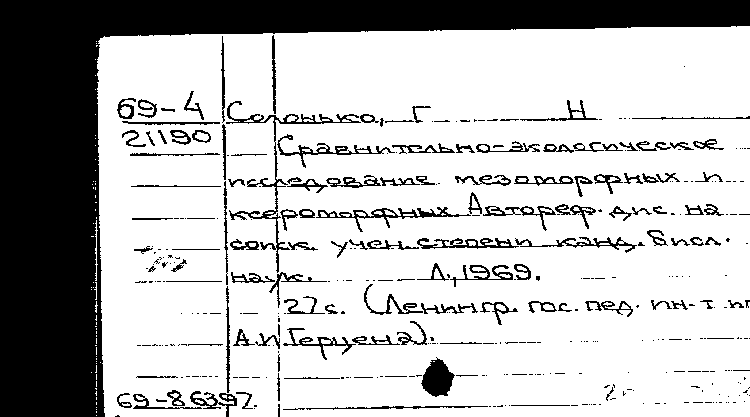 69-4 Солонько, Г Н
21190 Сравнительно-экологическое
исследование мезоморфных и
ксероморфных Автореф. дис. на
соиск. учен. степени канд. биол.
наук. Л., 1969.
27 с. (Ленингр. гос. пед. ин-т
А.И. Герцена).
69-86397